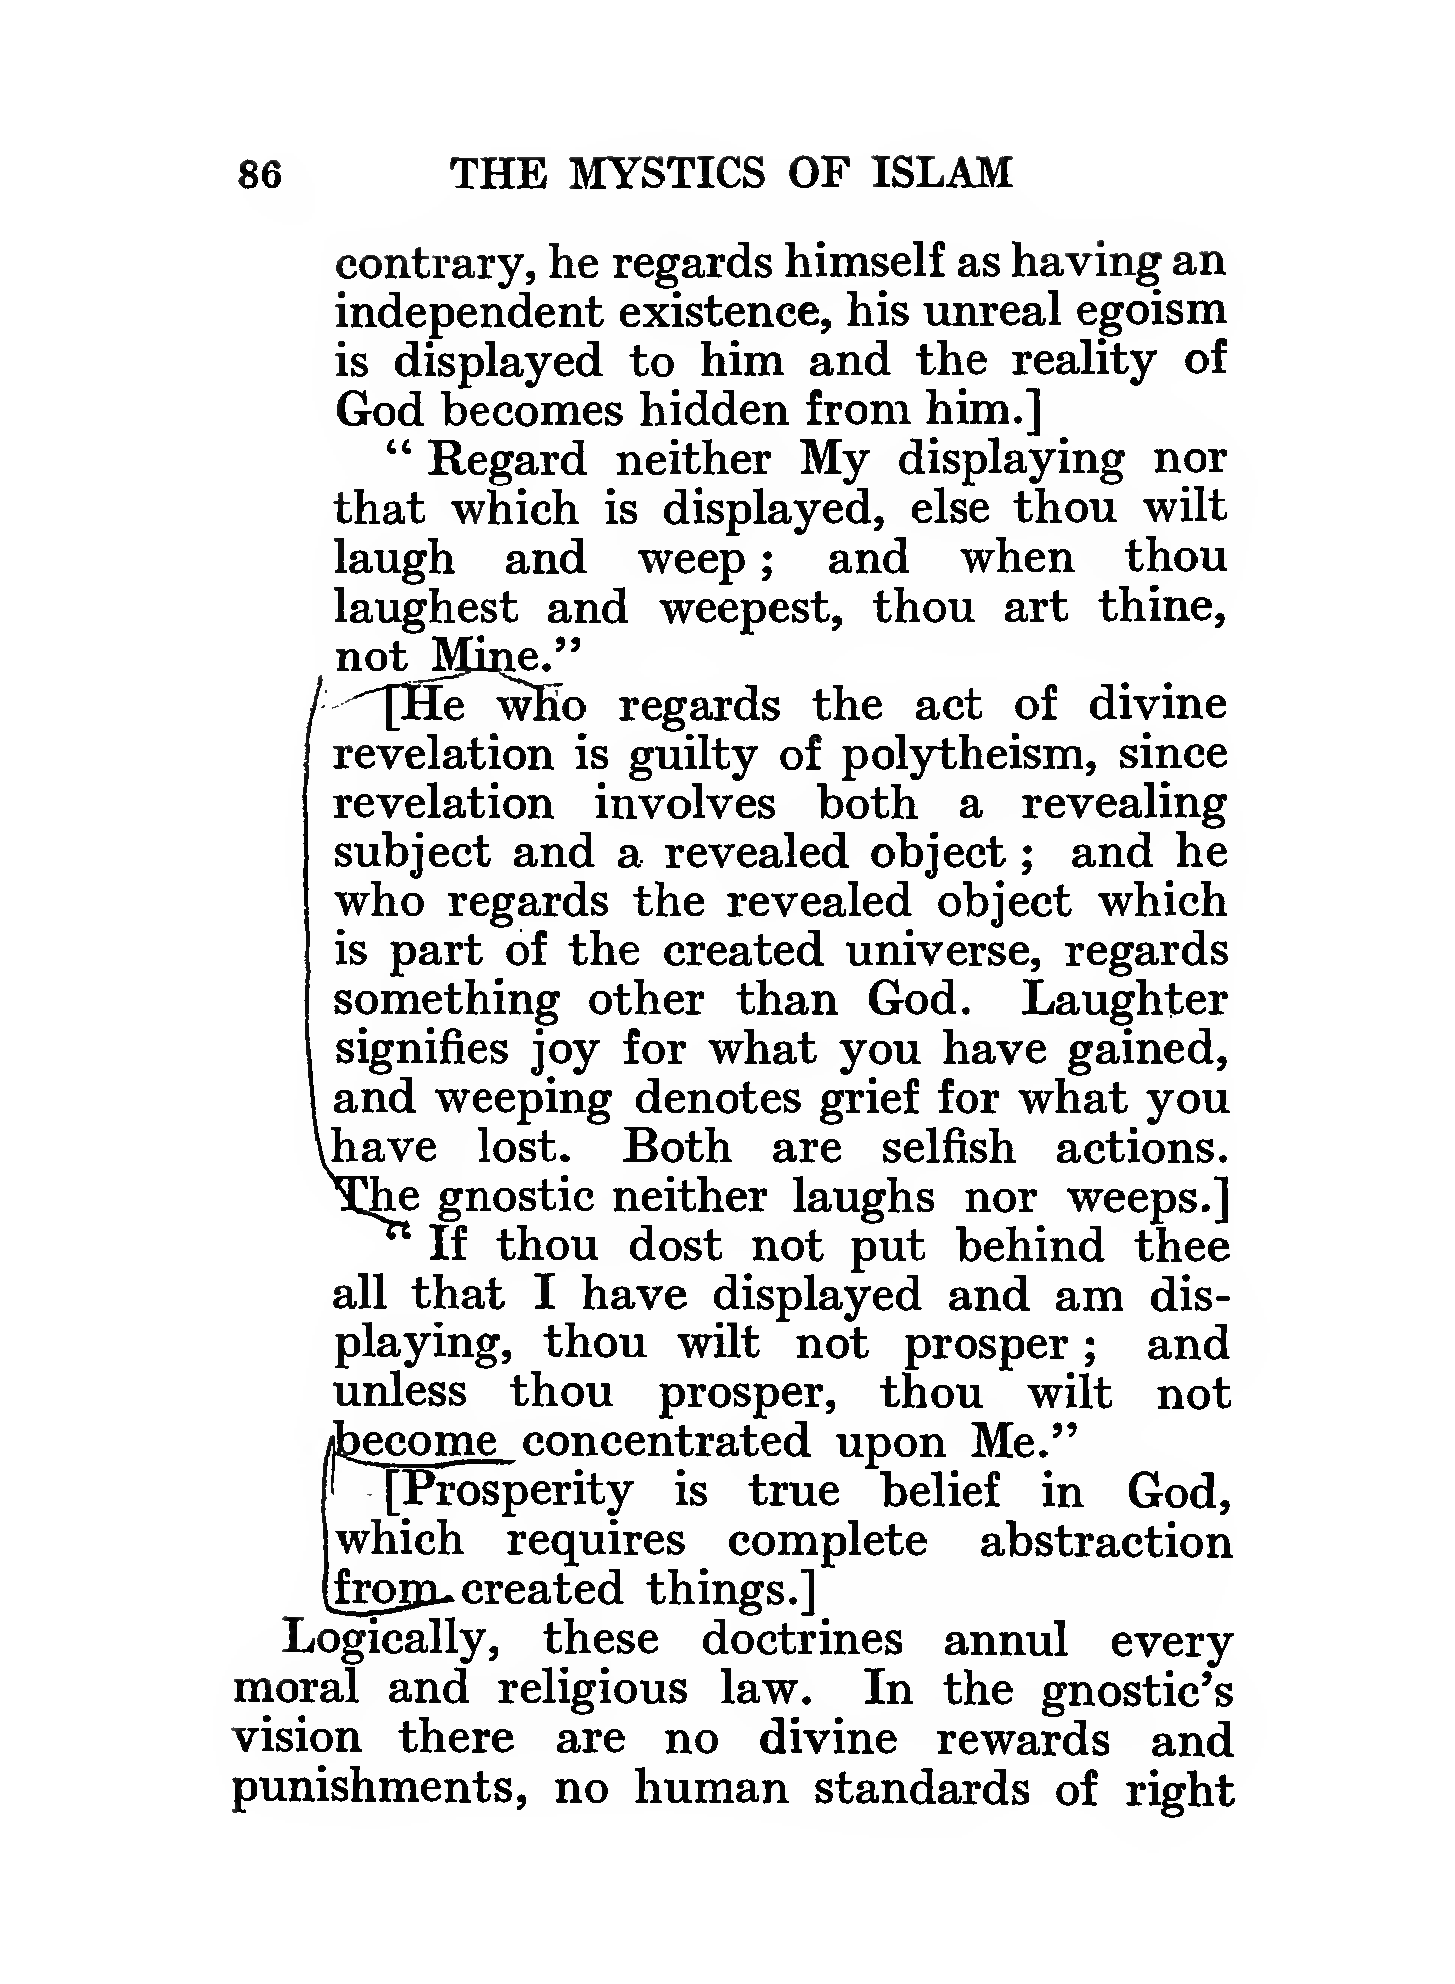 86 THE MYSTICS OF ISLAM
contrary, he regards himself as having an
independent existence, his unreal egoism
is displayed to him and the reality of
God becomes hidden from him.]
“ Regard neither My displaying nor
that which is displayed, else thou wilt
laugh and weep ; and when thou
laughest and weepest, thou art thine,
not Mine.”
[He who regards the act of divine
revelation is guilty of polytheism, since
revelation involves both a revealing
subject and a revealed object ; and he
who regards the revealed object which
is part of the created universe, regards
something other than God. Laughter
signifies joy for what you have gained,
and weeping denotes grief for what you
have lost. Both are selfish actions.
The gnostic neither laughs nor weeps.]
“ If thou dost not put behind thee
all that I have displayed and am dis-
playing, thou wilt not prosper ; and
unless thou prosper, thou wilt not
become concentrated upon Me.”
[Prosperity is true belief in God,
which requires complete abstraction
from created things.]
Logically, these doctrines annul every
moral and religious law. In the gnostic’s
vision there are no divine rewards and
punishments, no human standards of right